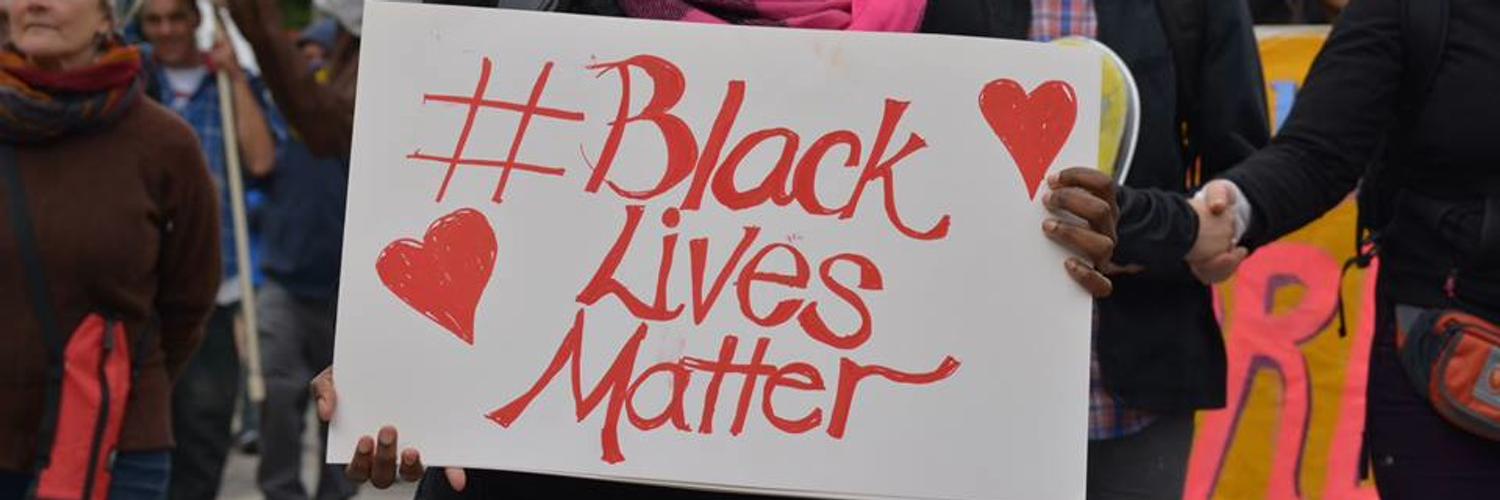 #Black
Lives
Matter